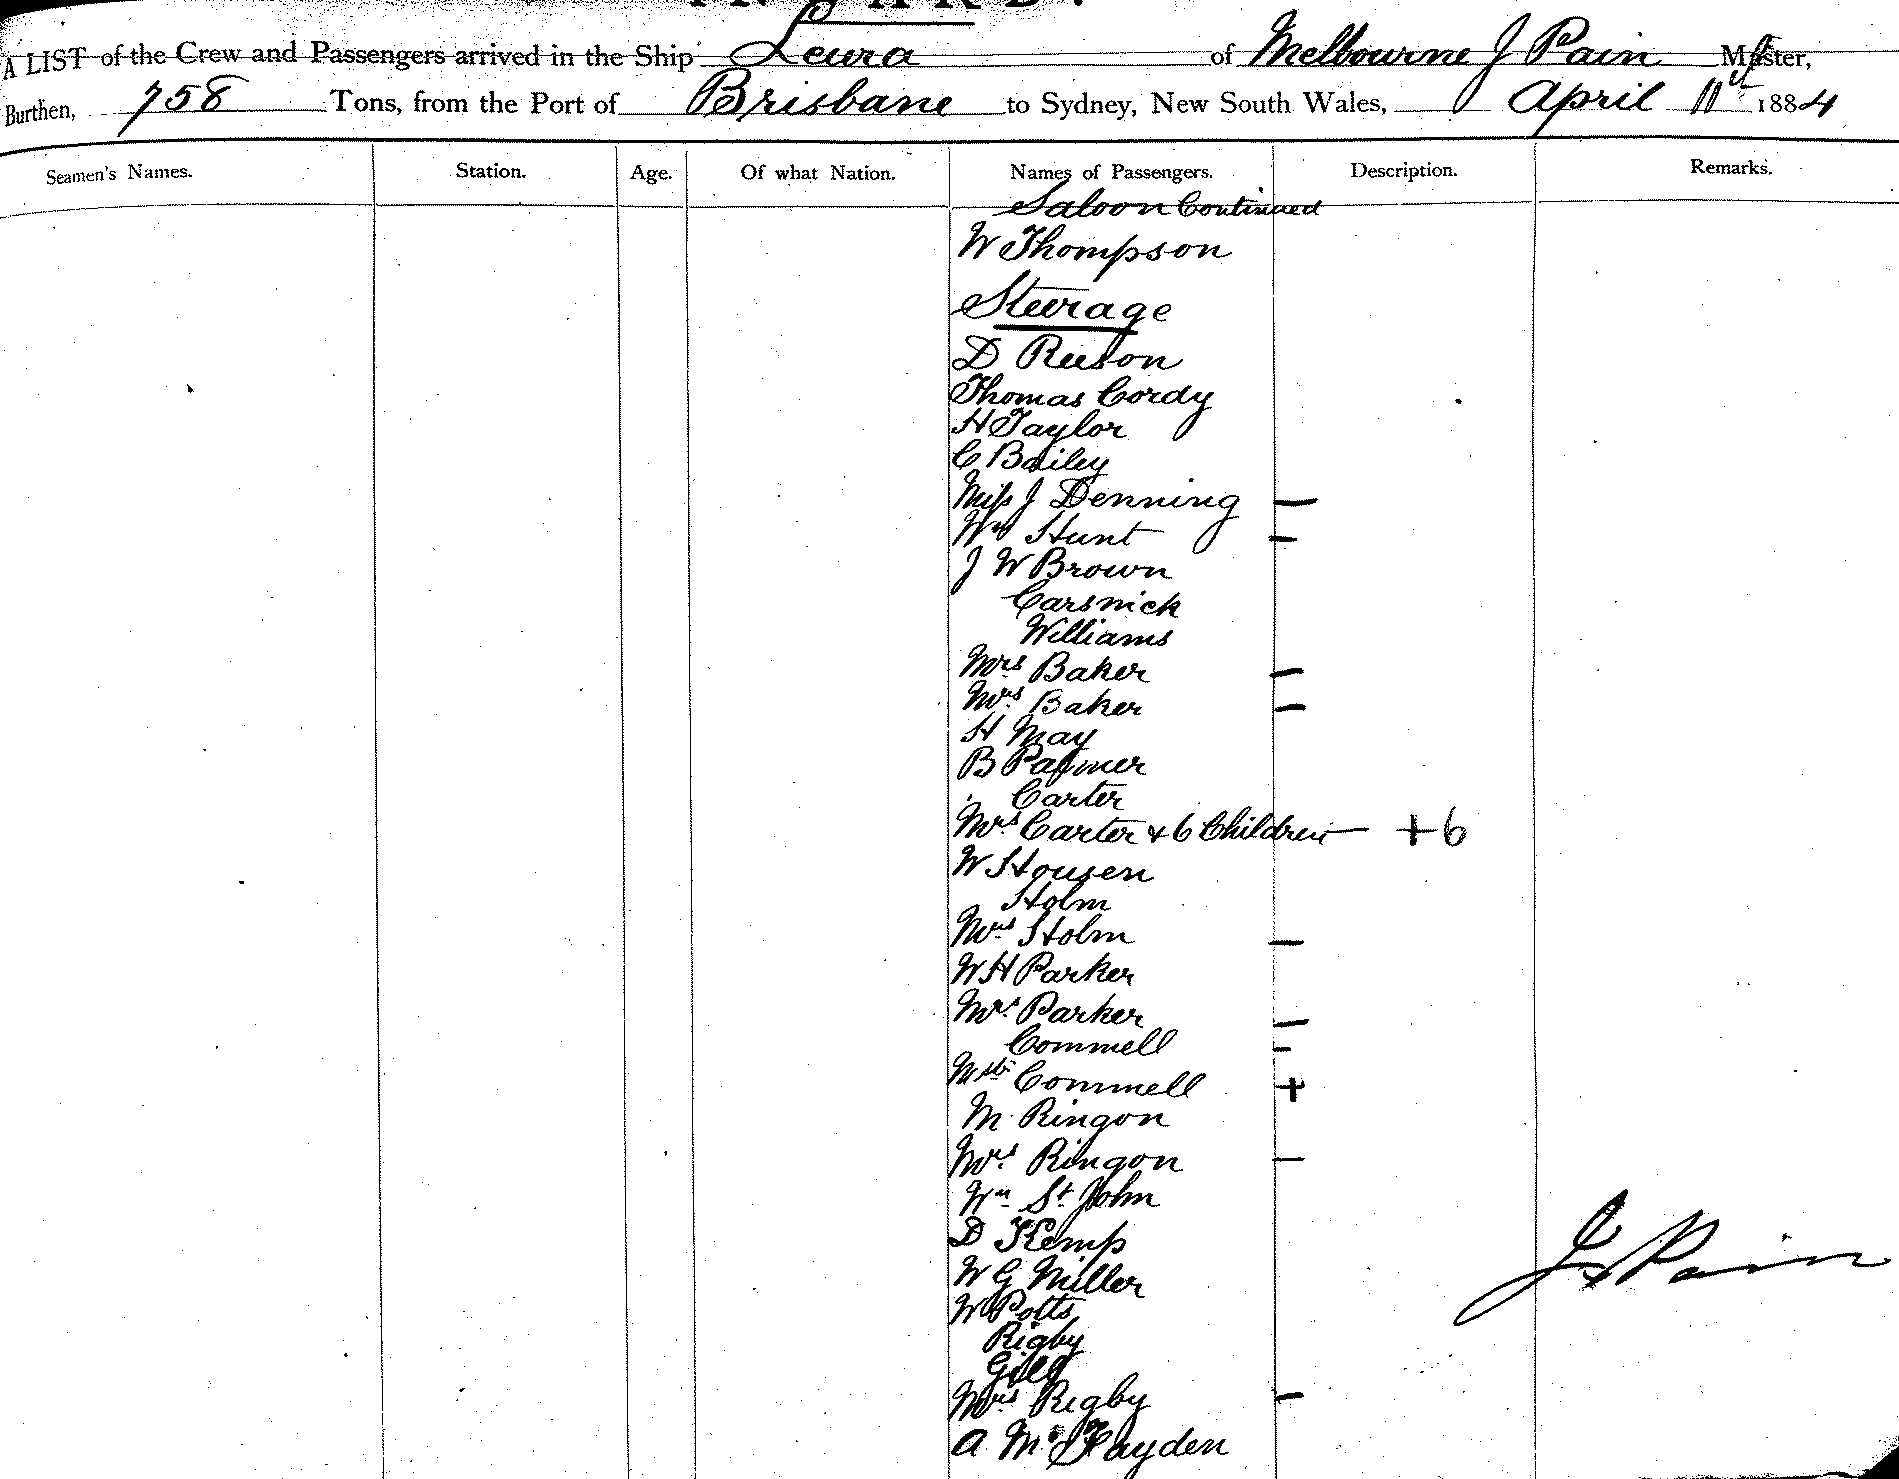 A LIST of the Crew and Passengers arrived in the Ship Leura of Melbourne J Pain Master,
Burthen, 758 Tons, from the Port of Brisbane to Sydney, New South Wales, April 11th 1884
Seamen's Names. Station. Age. Of what Nation. Names of Passengers. Description. Remarks.
Saloon Continued
W Thompson
Steerage
D Reeson
Thomas Cordy
H Taylor
C Bailey
Miss J Denning —
Hunt —
J W Brown
Carsnick
Williams
Mrs Baker —
Mrs Baker —
H May
B Palmer
Carter
Mrs Carter & 6 Children — + 6
W Housen
Holm
Mrs Holm —
W H Parker
Mrs Parker —
Commell -
Commell +
M Ringon
Mrs Ringon —
Wm St John
D Kemp
W G Miller
W Potts
Rigby
Mrs Rigby —
J Pain
A